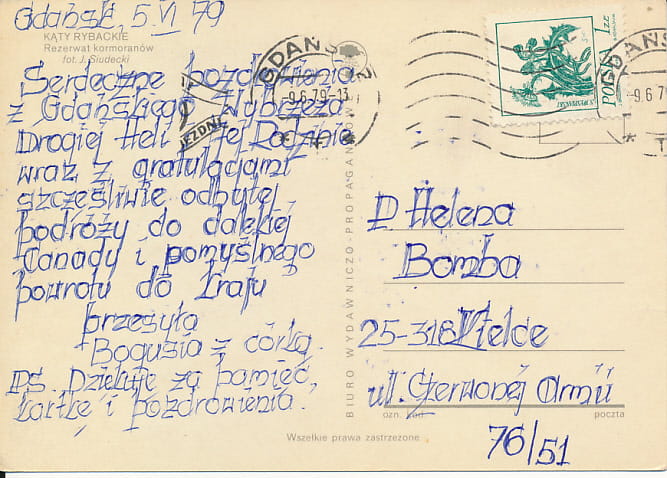 Gdańsk, 5 VI 79
KĄTY RYBACKIE
Rezerwat kormoranów
fot. J. Siudecki
Serdeczne pozdrowienia
z Gdańskiego Wybrzeża
Drogiej Heli i Jej Rodzinie
wraz z gratulacjami
szczęśliwie odbytej
podróży do dalekiej
Canady i pomyślnego
powrotu do kraju
przesyła
Bogusia z córką.
PS. Dziękuję za pamięć,
kartkę i pozdrowienia.
GDAŃSK 2
-9.6.79.-13
JEZDNI
BIURO WYDAWNICZO-PROPAGANDOWE
POLSKA 1 ZŁ
GDAŃS
-9.6.7
P Helena
Bomba
25-318 Kielce
ul. Czerwonej Armii
76/51
ozn. kod
poczta
Wszelkie prawa zastrzeżone